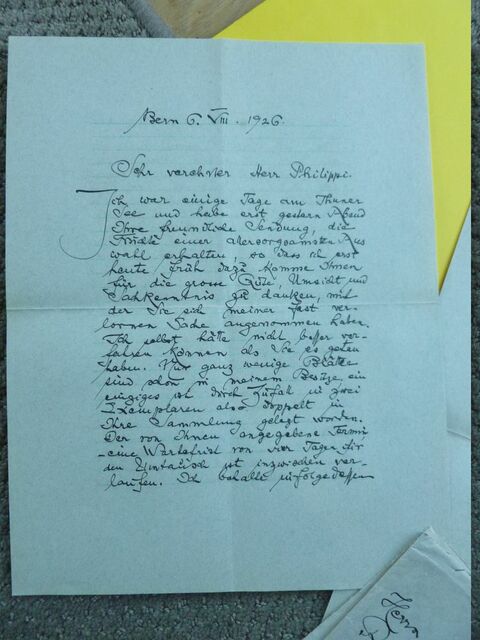 Bern 6. VIII. 1926.
Sehr verehrter Herr Philippi.
Ich war einige Tage am Thuner
See und habe erst gestern Abend
Ihre freundliche Sendung, die
Früchte einer allersorgsamsten Aus
wahl erhalten, so dass ich erst
heute früh dazu komme Ihnen
für die grosse Güte, Umsicht und
Sachkenntnis zu danken, mit
der Sie sich meiner fast ver-
lornen Sache angenommen haben.
Ich selbst hätte nicht besser ver-
fahren können als Sie es getan
haben. Nur ganz wenige Blätter
sind schon in meinem Besitze, ein
einziges ist durch Zufall in zwei
Exemplaren also doppelt in
Ihre Sammlung gelegt worden.
Der von Ihnen angegebene Termin
eine Wartefrist von vier Tagen für
den Umtausch ist inzwischen ver-
laufen. Ich behalte infolgedessen
Herrn